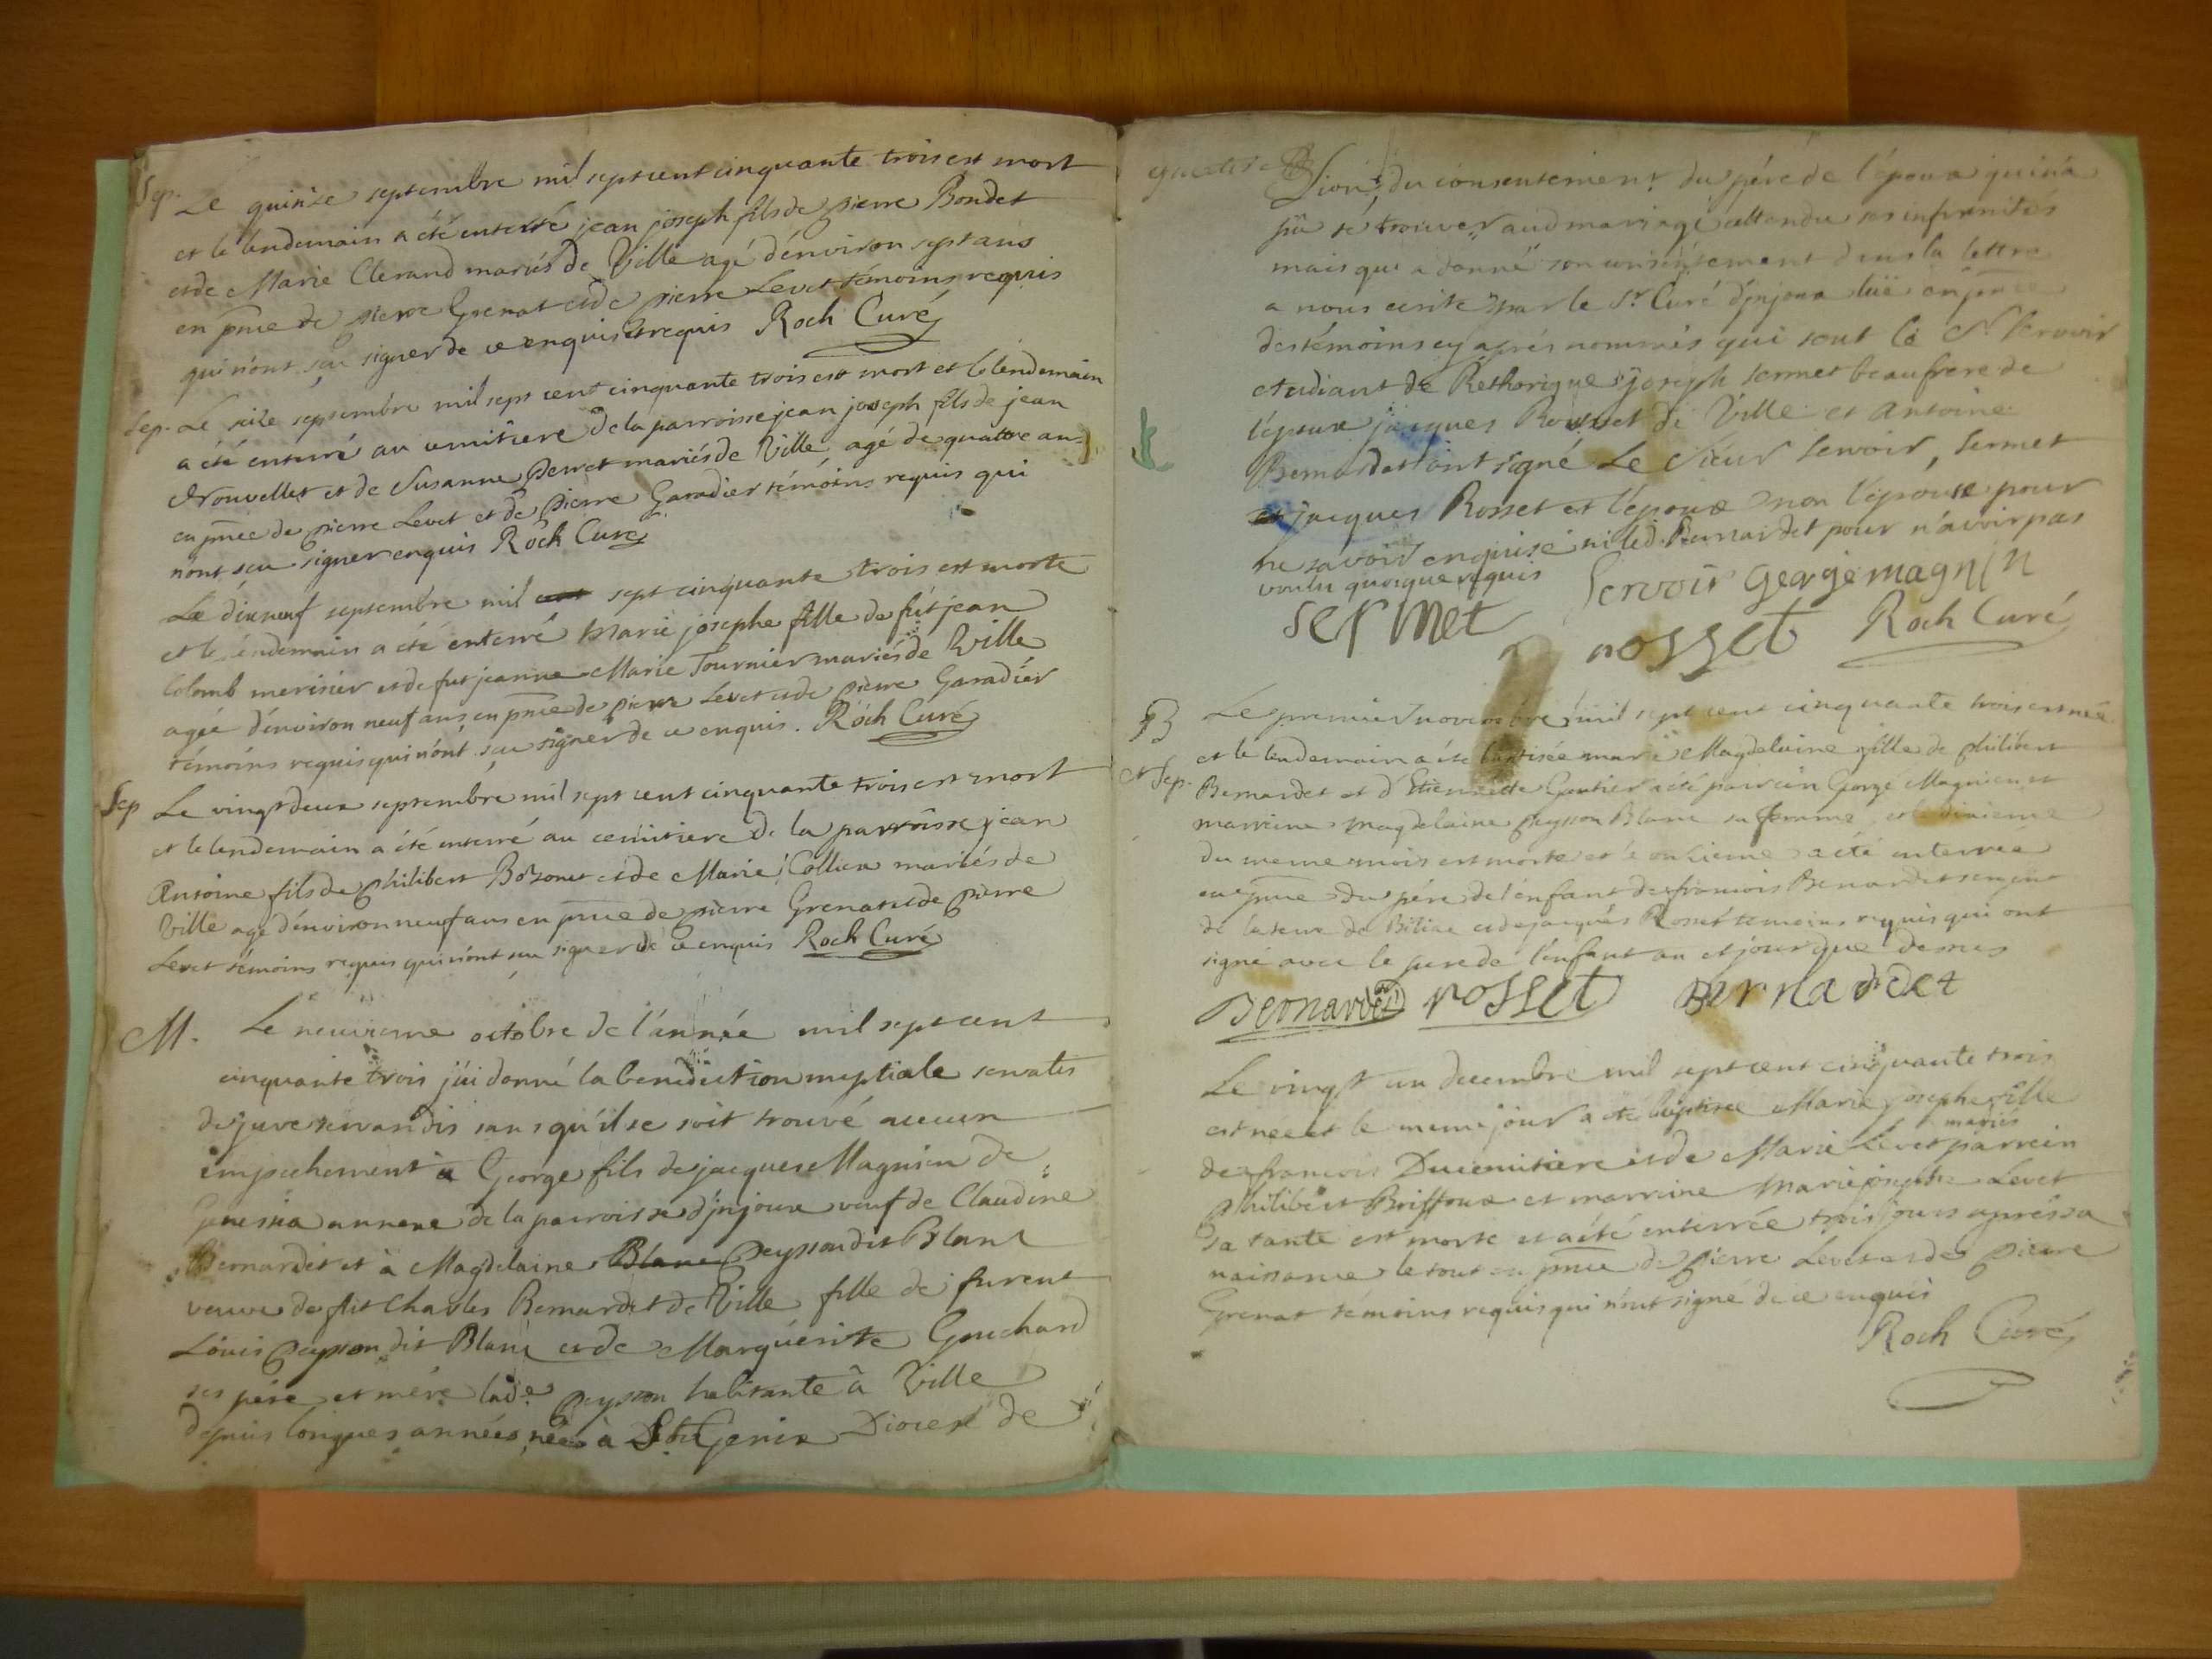 Sep. Le quinze septembre mil sept cent cinquante trois est mort
et le lendemain a été enterré jean joseph fils de pierre Bondet
et de Marie Clerand mariés de Ville agé d'énviron sept ans
en pnce de pierre Grenat et de pierre Levet témoins requis
qui n'ont sçu signer de ce enquis et requis Roch Curé
Sep. Le seize septembre mil sept cent cinquante trois est mort et le lendemain
a été enterré au cemitiere de la parroisse jean joseph fils de jean
Drouvellet et de Susanne Perret mariés de Ville agé de quattre ans
en pnce de pierre Levet et de pierre Garadier témoins requis qui
n'ont sçu signer enquis Roch Curé
Le dixneuf septembre mil cent sept cinquante trois est morte
et le lendemain a été enterré Marie josephe fille de fut jean
Colomb merisier et de fut jeanne Marie Tournier mariés de Ville
agée d'énviron neuf ans en pnce de pierre Levet et de pierre Garadier
témoins requis qui n'ont sçu signer de ce enquis. Roch Curé
Sep Le vingt deux septembre mil sept cent cinquante trois est mort
et le lendemain a été enterré au cemitiere de la parroisse jean
Antoine fils de philibert Bozonet et de Marie Collux mariés de
Ville agé d'énviron neuf ans en pnce de pierre Grenat et de pierre
Levet témoins requis qui n'ont sçu signer de ce enquis Roch Curé
M. Le neuvieme octobre de l'année mil sept cent
cinquante trois j'ai donné la benediction nuptiale servatis
de jure servandis sans qu'il se soit trouvé aucun
empechement a George fils de jacques Magnien de
annexe de la parroisse d'jnjoux veuf de Claudine
Bernardet et à Magdelaine Blanc Peysson dit Blanc
veuve de fut Charles Bernardet de Ville fille de furent
Loüis peysson dit Blanc et de Marguérite Gouchard
ses pére et mére lade. peysson habitante à Ville
depuis longues années née à St Genix Diocese de
Lion, du consentement du pére de l'époux qui n'a
pû sé trouver aud mariage attendu ses infirmités
mais qui a donné son consentement dans la lettre
a nous ecrite par le Sr. Curé d'jnjoux lüe en pnce
des témoins cy aprés nommés qui sont le Sr Servoir
etudiant de Réthorique joseph sermet beaufrere de
l'époux jacques Rosset de Ville et Antoine
Bernardet ont signé Le Sieur Servoir, Sermet
et jacques Rosset et l'époux non l'épouse pour
ne savoir enquise ni led. Bernardet pour n'avoir pas
voulu quoique requis Servoir george magnin
sermet rosset Roch Curé
B Le premier novembre mil sept cent cinquante trois est née
et le lendemain a été baptisée marie Magdelaine fille de philibert
et Sep. Bernardet et d'Etiennette Gautier a été parrein George Magnien et
marreine magdelaine peysson Blanc sa femme, et le dixieme
du meme mois est morte et le onzieme a été enterrée
en pnce du pére de l'enfant de francois Bernardet sergent
de la terre de Biliac et de jacques Rosset temoins requis qui ont
signé avec le pere de l'enfant an et jour que dessus
Bernardet rosset Bernardet
Le vingt un decembre mil sept cent cinquante trois
est née et le meme jour a été baptisée Marie josephe fille
mariés
de francois Ducemitiere et de Marie Levet parrein
philibert Briffoux et marreine Marie josephe Levet
sa tante est morte et a été enterrée trois jours aprés sa
naissance le tout en pnce de pierre Levet et de pierre
Grenat témoins requis qui n'ont signé de ce enquis
Roch Curé